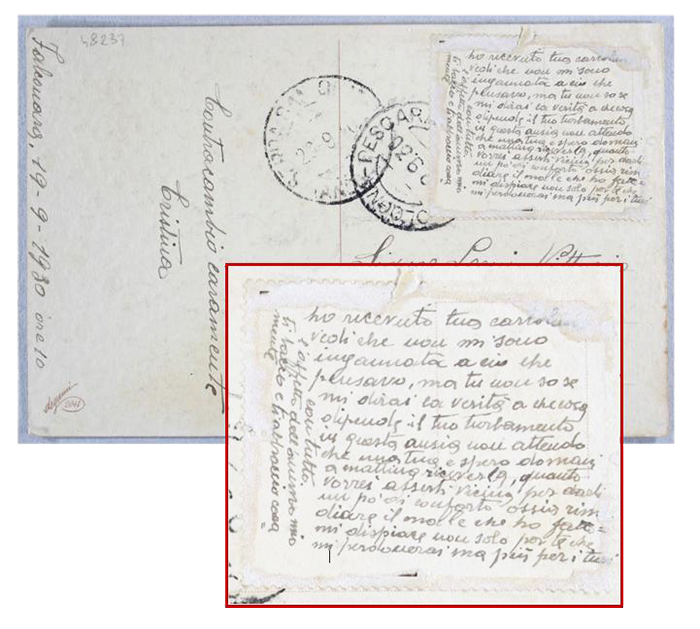 48237
Falconara, 19-9-1930 ore 10
Contraccambio caramente
Cristina
2041
PESCARA
ho ricevuto tua cartolina
vedi che non mi sono
ingannata a ciò che
pensavo, ma tu non so se
mi dirai la verità a che cosa
dipende il tuo turbamento
in questa ansia non attendo
che una tua e spero domani
a mattina riceverla, quanto
vorrei esserti vicina per darti
un po' di conforto ossia rim
diare il male che ho fatto =
mi dispiace non solo per te che
mi perdonerai ma più per i tuoi
con tutto
l'affetto dell'animo mio
ti bacio e ti abbraccio cara
mente